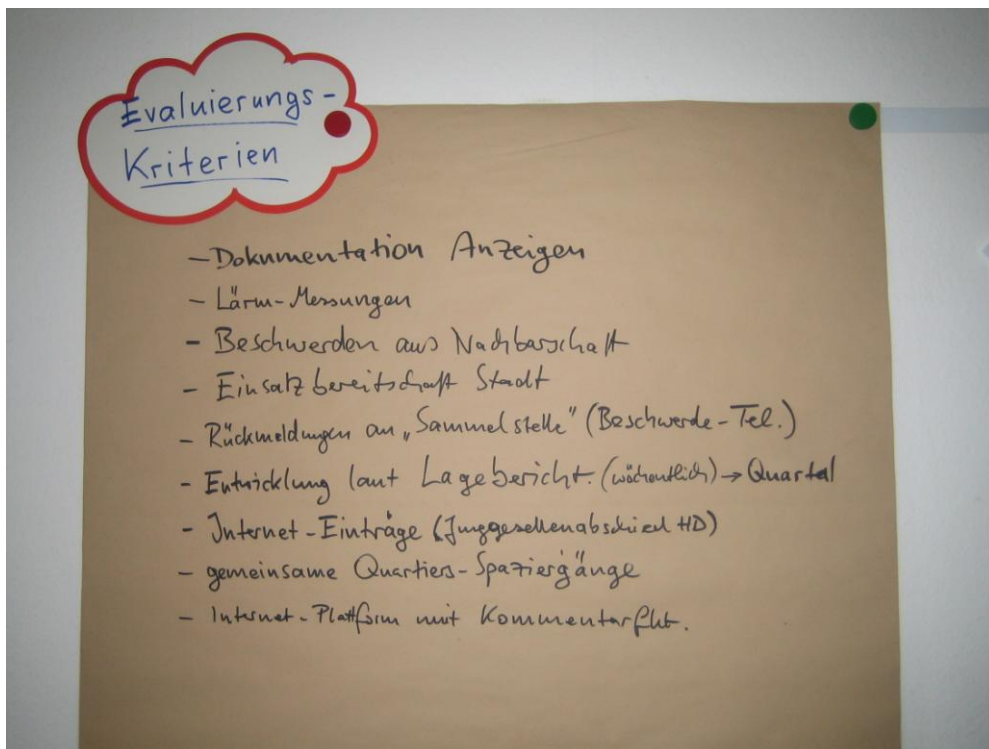 Evaluierungs-
Kriterien
- Dokumentation Anzeigen
- Lärm-Messungen
- Beschwerden aus Nachbarschaft
- Einsatzbereitschaft Stadt
- Rückmeldungen an „Sammelstelle" (Beschwerde-Tel.)
- Entwicklung laut Lagebericht. (wöchentlich) → Quartal
- Internet-Einträge (Junggesellenabschied HD)
- gemeinsame Quartiers-Spaziergänge
- Internet-Plattform mit Kommentarfkt.